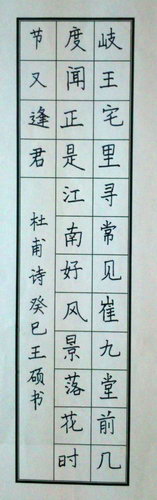 岐王宅里寻常见崔九堂前几
度闻正是江南好风景落花时
节又逢君 杜甫诗癸巳王硕书